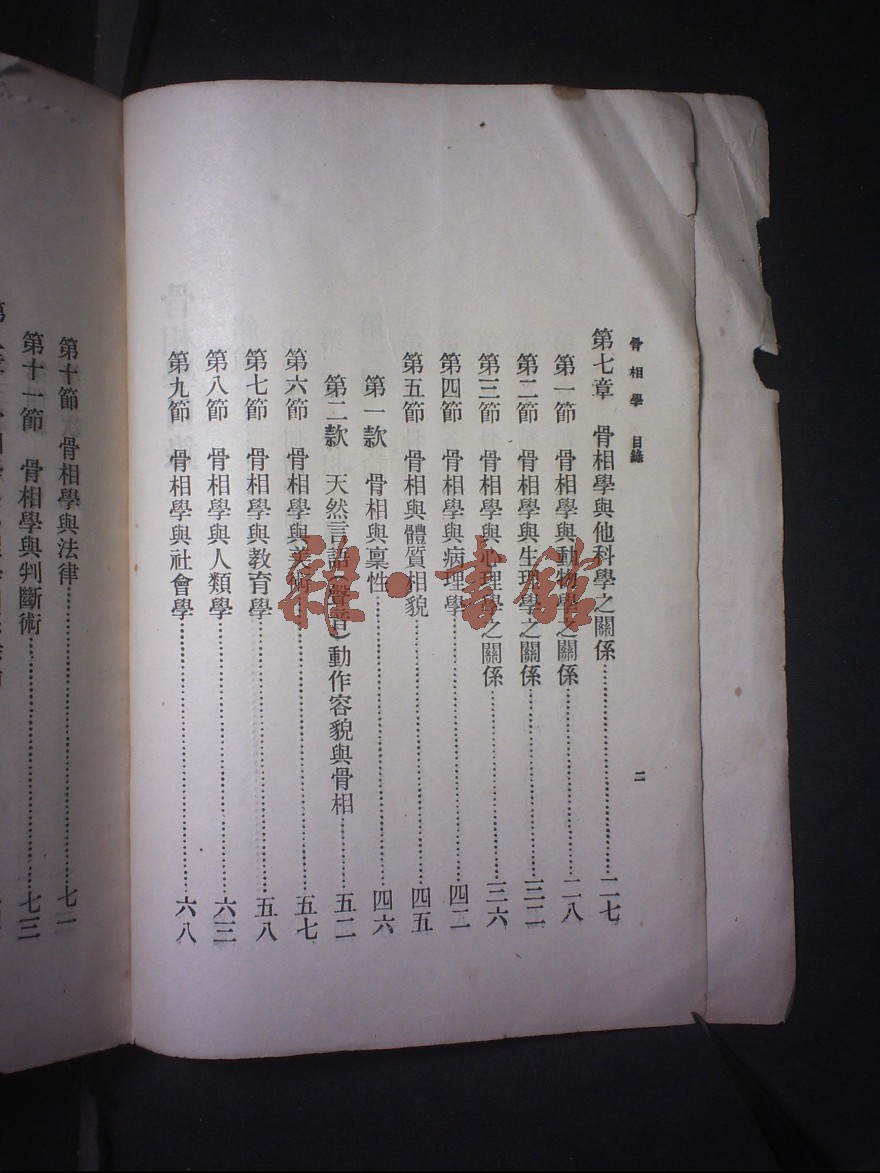 骨相學 目錄
第七章 骨相學與他科學之關係……二七
第一節 骨相學與動物學之關係……二八
第二節 骨相學與生理學之關係……三二
第三節 骨相學與心理學之關係……三六
第四節 骨相學與病理學……四二
第五節 骨相與體質相貌……四五
第一款 骨相與稟性……四六
第二款 天然言語(聲音)動作容貌與骨相……五二
第六節 骨相學與美術……五七
第七節 骨相學與教育學……五八
第八節 骨相學與人類學……六三
第九節 骨相學與社會學……六八
二
第十節 骨相學與法律……七一
第十一節 骨相學與判斷術……七三
雜·書館